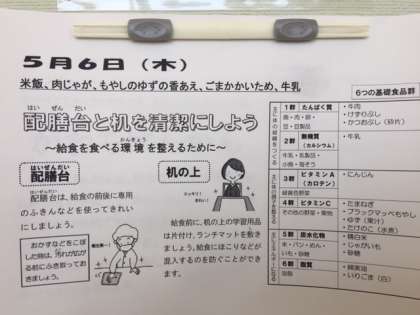 5月6日（木）
米飯、肉じゃが、もやしのゆずの香あえ、ごまかかいため、牛乳
はいぜんだい
かんきょう
配膳台と机を清潔にしよう
～給食を食べる環境を整えるために～
はいぜんだい
配膳台
配膳台は、給食の前後に専用
のふきんなどを使ってきれい
にしましょう。
おかずなどをこぼ
した時は、汚れが広が
る前にふき取っておき
ましょう。
机の上
給食前に、机の上の学習用品
は片付け、ランチマットを敷き
ましょう。給食にほこりなどが
混入するのを防ぐことができ
ます。
6つの基礎食品群
1群 たんぱく質
魚・肉・卵・
豆・豆製品
・牛肉
・けずりぶし
・かつおぶし（砕片）
2群 無機質
（カルシウム）
牛乳・乳製品・
小魚・海そう
・牛乳
3群 ビタミンA
（カロテン）
緑黄色野菜
・にんじん
4群 ビタミンC
その他の野菜・果物
・たまねぎ
・ブラックマッペもやし
・ゆず（果汁）
・たけのこ（水煮）
5群 炭水化物
米・パン・めん・
いも・砂糖
・精白米
・じゃがいも
・砂糖
6群 脂質
油脂